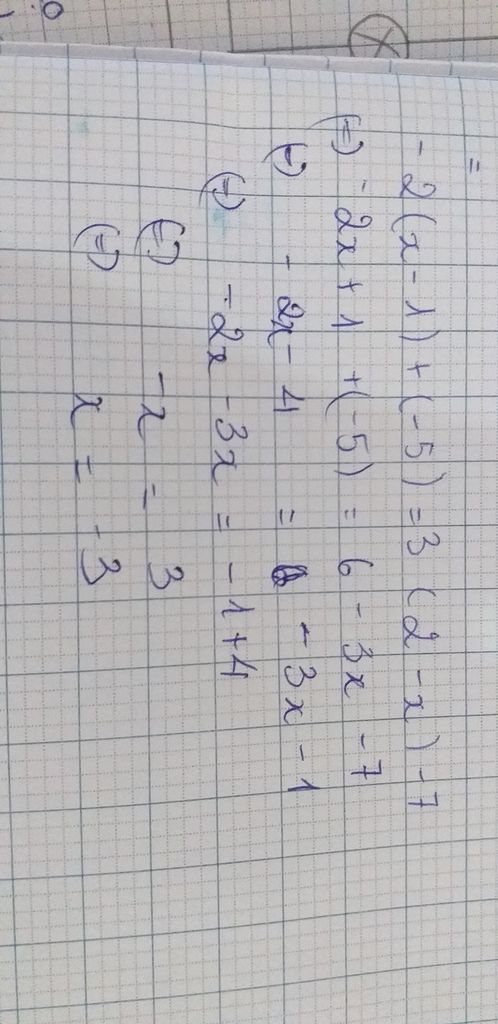 =
- 2(x - 1) + (-5) = 3 (2 - x) - 7
(=) - 2x + 1 + (-5) = 6 - 3x - 7
(=) - 2x - 4 = - 3x - 1
(=) - 2x - 3x = - 1 + 4
(=) - x = 3
(=) x = - 3